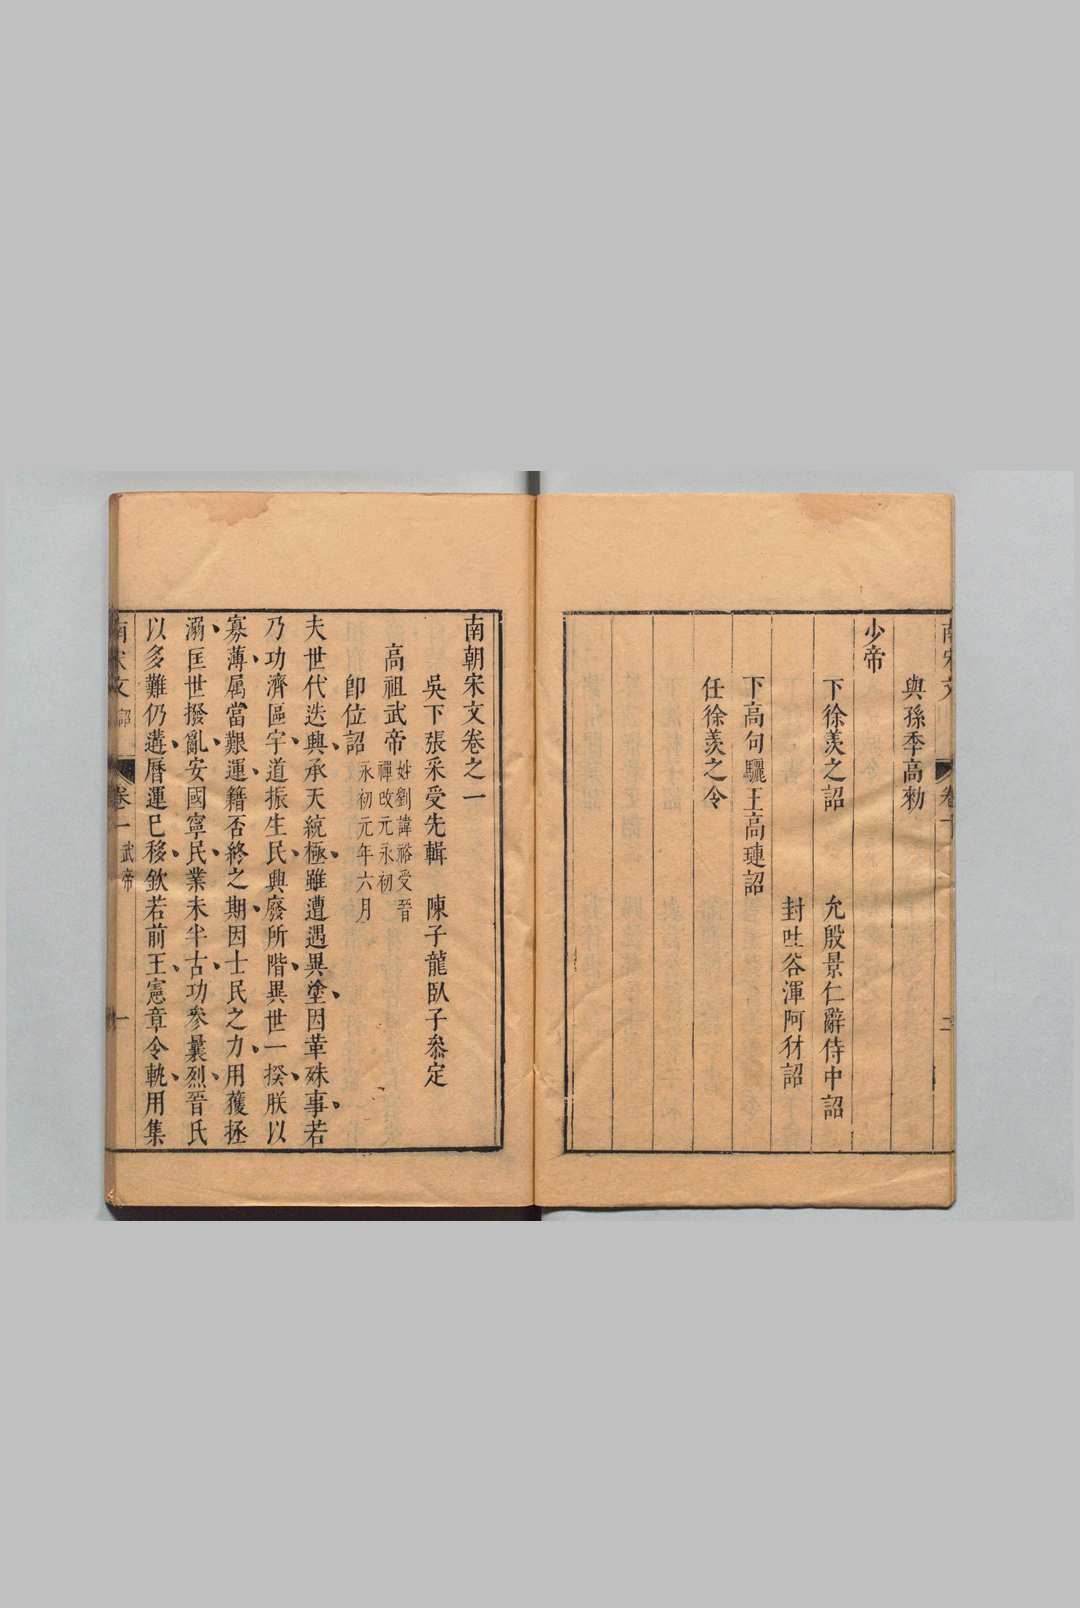 與孫季高勑
少帝
下徐羨之詔
允殷景仁辭侍中詔
封吐谷渾阿犲詔
下高句驪王高璉詔
任徐羨之令
南朝宋文卷之一
吳下張采受先輯　陳子龍臥子叅定
高祖武帝
姓劉諱裕受晉
禪改元永初
即位詔
永初元年六月
夫世代迭興承天統極雖遭遇異塗因革殊事若
乃功濟區宇道振生民興廢所階異世一揆朕以
寡薄属當艱運籍否終之期因士民之力用獲拯
溺匡世撥亂安國寧民業未半古功參曩烈晉氏
以多難仍遘曆運已移欽若前王憲章令軌用集
卷一
武帝
一